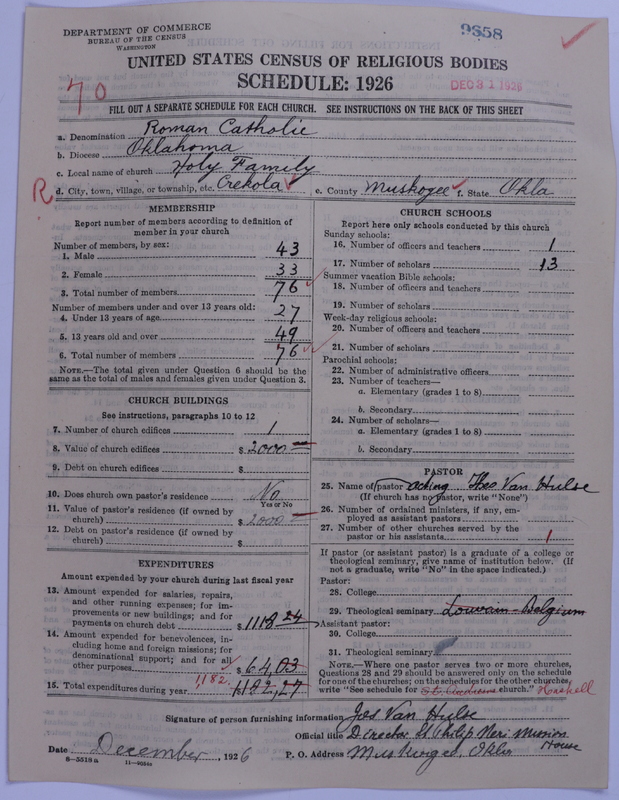 DEPARTMENT OF COMMERCE
BUREAU OF THE CENSUS
WASHINGTON
9858
UNITED STATES CENSUS OF RELIGIOUS BODIES
SCHEDULE: 1926
DEC 31 1926
70
FILL OUT A SEPARATE SCHEDULE FOR EACH CHURCH. SEE INSTRUCTIONS ON THE BACK OF THIS SHEET
a. Denomination Roman Catholic
b. Diocese Oklahoma
c. Local name of church Holy Family
R
d. City, town, village, or township, etc. Crekola e. County Muskogee f. State Okla
MEMBERSHIP
Report number of members according to definition of member in your church
Number of members, by sex:
1. Male 43
2. Female 33
3. Total number of members 76
Number of members under and over 13 years old:
4. Under 13 years of age 27
5. 13 years old and over 49
6. Total number of members 76
NOTE.—The total given under Question 6 should be the
same as the total of males and females given under Question 3.
CHURCH BUILDINGS
See instructions, paragraphs 10 to 12
7. Number of church edifices 1
8. Value of church edifices $ 2000
9. Debt on church edifices $
10. Does church own pastor's residence No
Yes or No
11. Value of pastor's residence (if owned by
church) $ 2000
12. Debt on pastor's residence (if owned by
church) $
EXPENDITURES
Amount expended by your church during last fiscal year
13. Amount expended for salaries, repairs,
and other running expenses; for im-
provements or new buildings; and for
payments on church debt $ 1118 24
14. Amount expended for benevolences, in-
cluding home and foreign missions; for
denominational support; and for all
other purposes $ 64,03
1182
15. Total expenditures during year $ 1182,27
CHURCH SCHOOLS
Report here only schools conducted by this church
Sunday schools:
16. Number of officers and teachers 1
17. Number of scholars 13
Summer vacation Bible schools:
18. Number of officers and teachers
19. Number of scholars
Week-day religious schools:
20. Number of officers and teachers
21. Number of scholars
Parochial schools:
22. Number of administrative officers
23. Number of teachers—
a. Elementary (grades 1 to 8)
b. Secondary
24. Number of scholars—
a. Elementary (grades 1 to 8)
b. Secondary
PASTOR
25. Name of pastor acting Jos Van Hulse
(If church has no pastor, write "None")
26. Number of ordained ministers, if any, em-
ployed as assistant pastors
27. Number of other churches served by the
pastor or his assistants 1
If pastor (or assistant pastor) is a graduate of a college or
theological seminary, give name of institution below. (If
not a graduate, write "No" in the space indicated.)
Pastor:
28. College
29. Theological seminary Louvain-Belgium
Assistant pastor:
30. College
31. Theological seminary
NOTE.—Where one pastor serves two or more churches,
Questions 28 and 29 should be answered only on the schedule
for one of the churches; on the schedules for the other churches,
write "See schedule for St. Andrews church." Haskell
Signature of person furnishing information Jos Van Hulse
Official title Director St Philip Neri Mission House
Date December, 1926 P. O. Address Muskogee, Okla
8-5518a 11-9564a